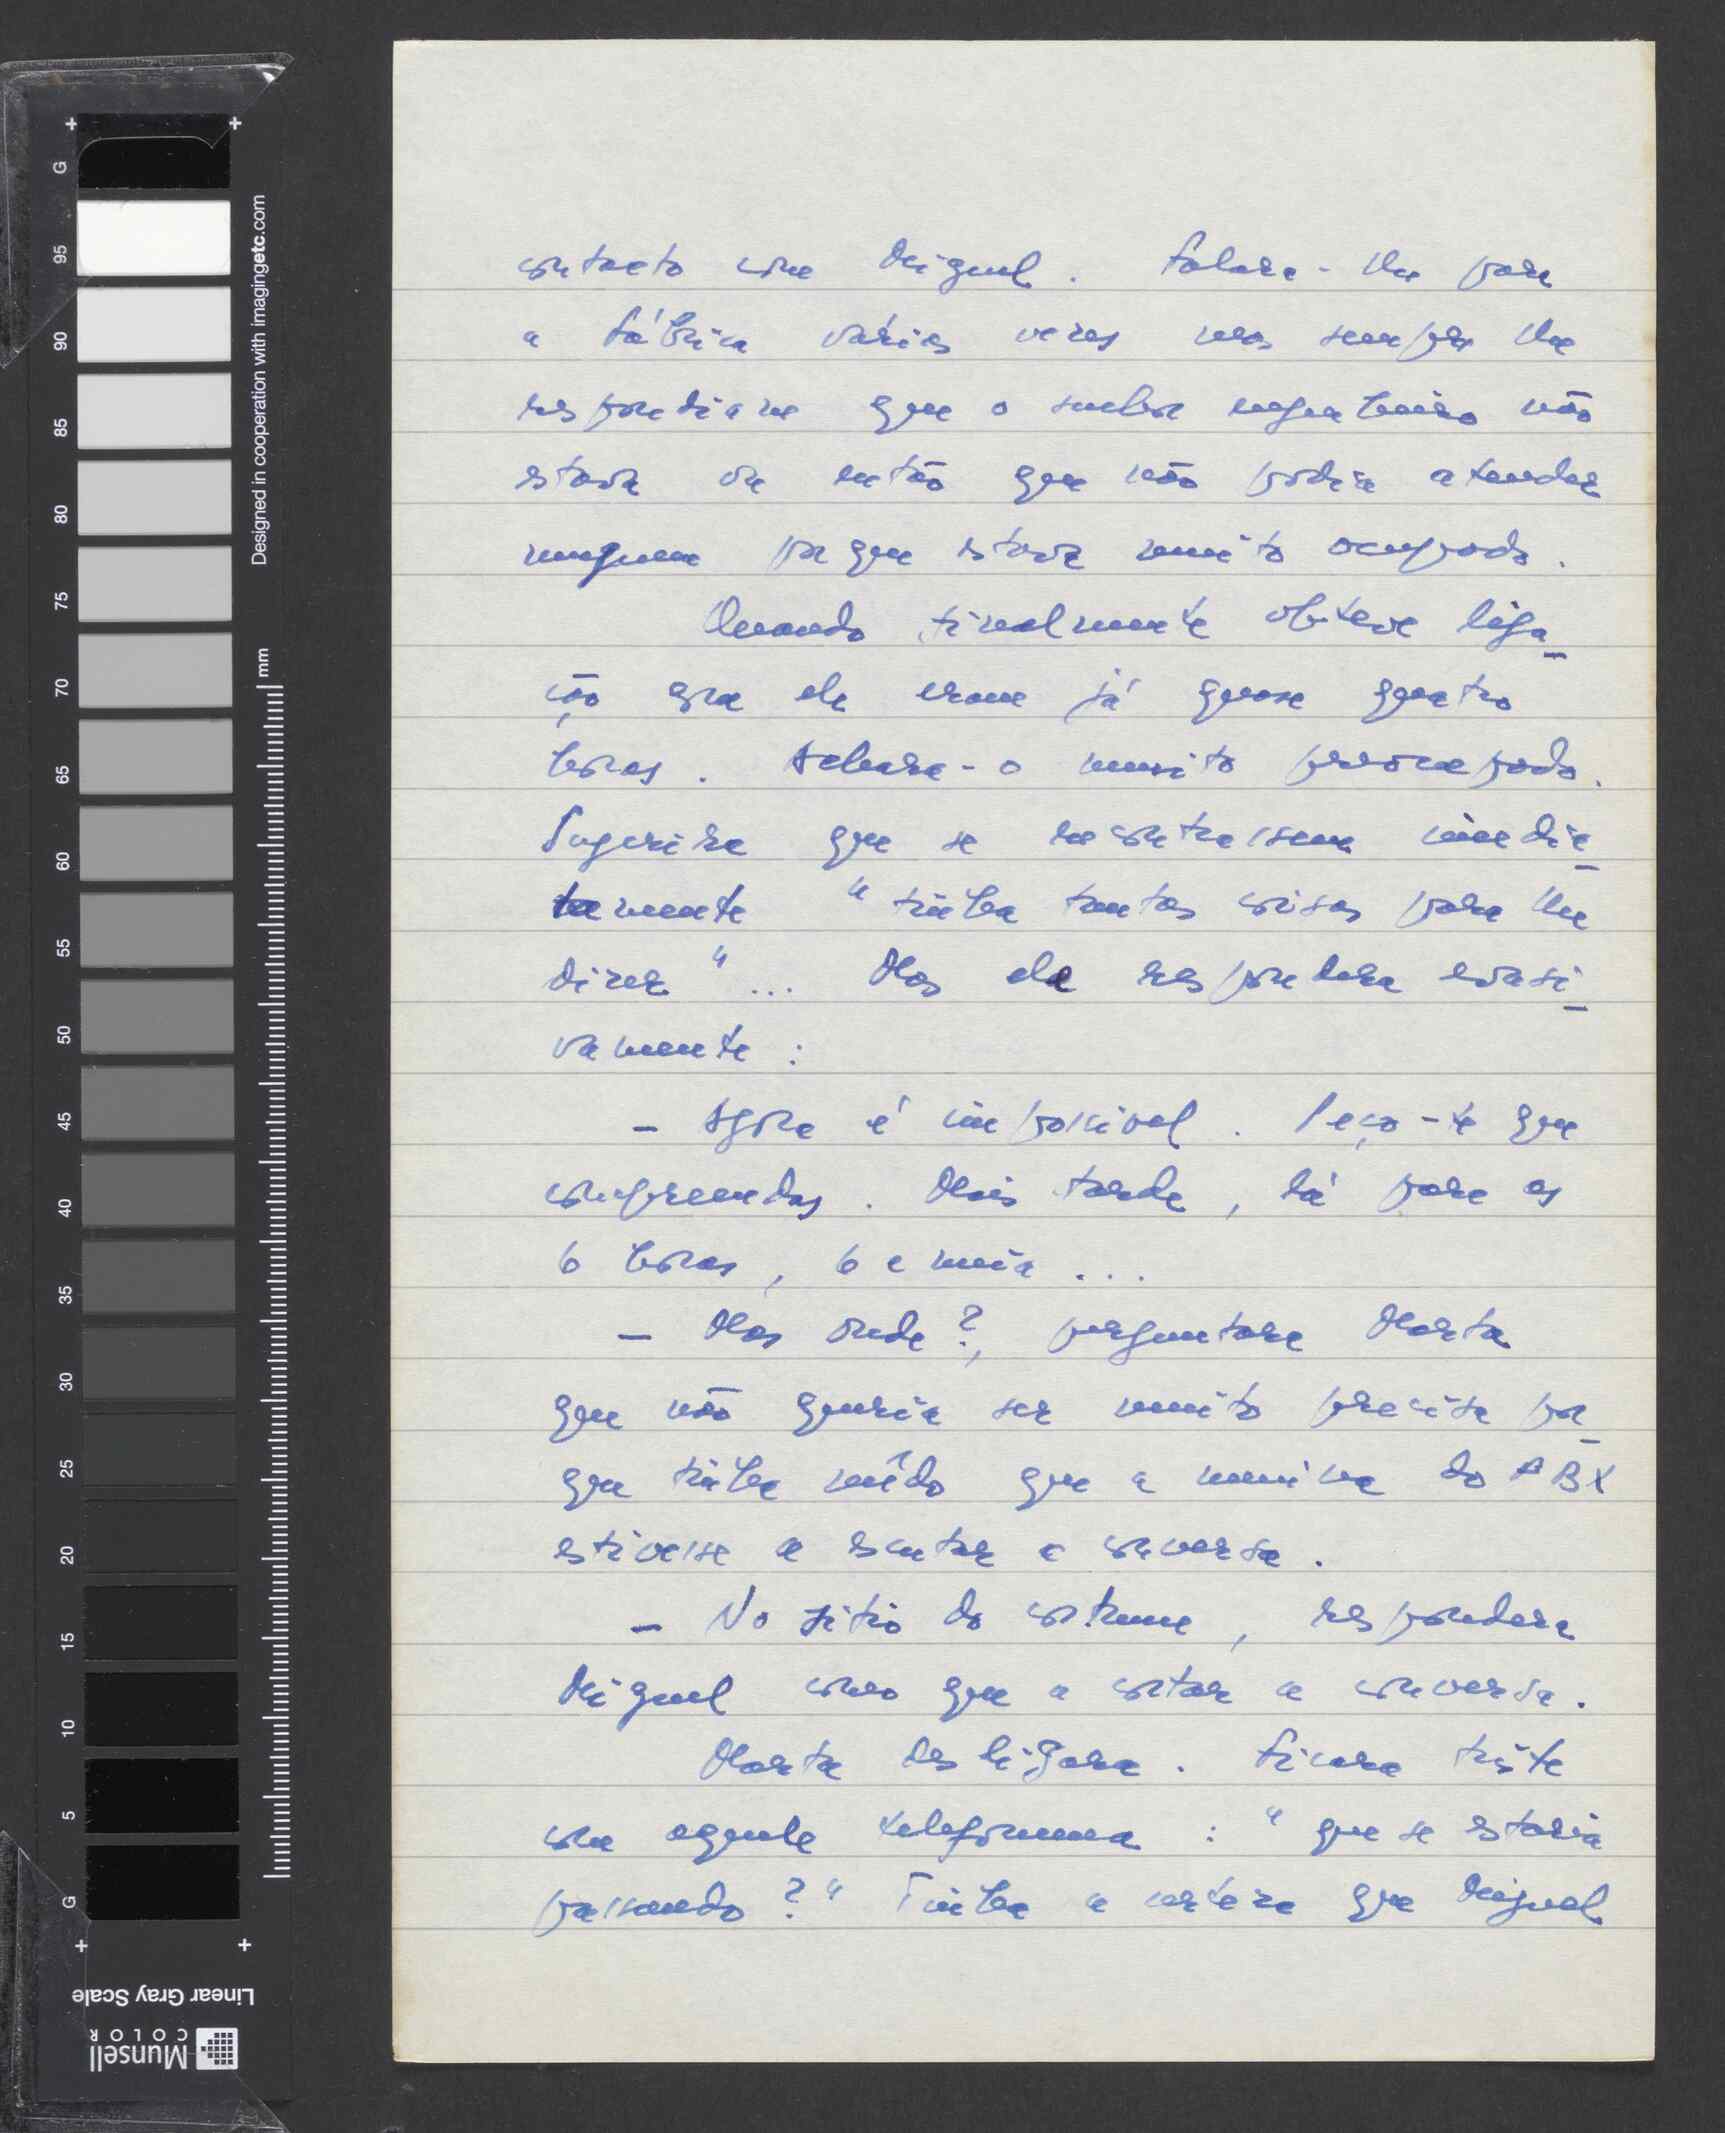 contacto com Miguel. Falara-lhe para
a fábrica várias vezes mas sempre lhe
responderam que o senhor engenheiro não
estava ou então que não podia atender
ninguem porque estava muito ocupado.
Quando finalmente obteve liga-
ção com ele eram já quase quatro
horas. Achara-o muito preocupado.
Sugerira que se encontrassem imedia-
tamente "tinha tantas coisas para lhe
dizer"... Mas ele respondera evasi-
vamente:
- Agora é impossivel. Peço-te que
compreendas. Mais tarde, lá para as
6 horas, 6 e meia...
- Mas onde?, perguntara Marta
que não queria ser muito precisa por-
que tinha mêdo que a menina do PBX
estivesse a escutar a conversa.
- No sitio do costume, respondera
Miguel como que a cortar a conversa.
Marta desligara. Ficara triste
com aquele telefonema: "que se estaria
passando?" Tinha a certeza que Miguel
G
95
90
85
80
75
70
65
60
55
50
45
40
35
30
25
20
15
10
5
G
mm
Designed in cooperation with imagingetc.com
Linear Gray Scale
Munsell
COLOR